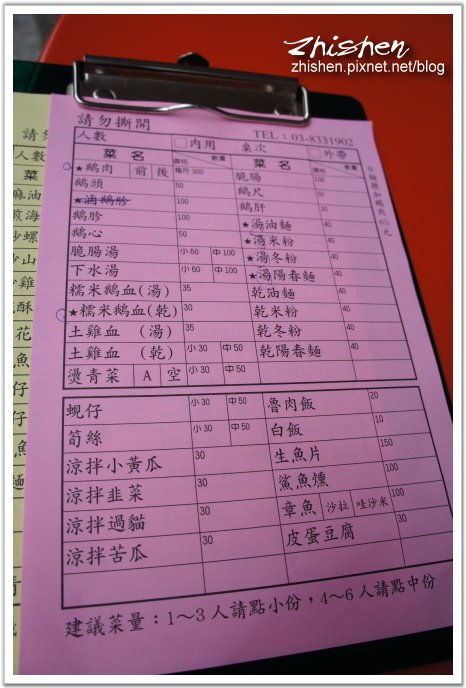 Zhishen
zhishen.pixnet.net/blog
請勿撕開
TEL：03-8331902
人數 □內用 桌次 □外帶
菜名 價格 數量 菜名 價格 數量
★鵝肉 前 後 每斤 300 脆腸 100
鵝頭 50 鵝尺 50
★滷鵝胗 100 鵝肝 30
鵝胗 100 ★湯油麵 40
鵝心 50 ★湯米粉 40
脆腸湯 小60 中100 ★湯冬粉 40
下水湯 小60 中100 ★湯陽春麵 40
糯米鵝血(湯) 35 乾油麵 40
★糯米鵝血(乾) 30 乾米粉 40
土雞血 (湯) 35 乾冬粉 40
土雞血 (乾) 小30 中50 乾陽春麵 40
燙青菜 A 空 小30 中50
蜆仔 小30 中50 魯肉飯 20
筍絲 小30 中50 白飯 10
涼拌小黃瓜 30 生魚片 150
涼拌韭菜 30 鯊魚燻 100
涼拌過貓 30 章魚 沙拉 哇沙米 100
涼拌苦瓜 30 皮蛋豆腐 30
建議菜量：1～3人請點小份，4～6人請點中份
請
人數
菜
麻油
煎海
炒螺
炒山
雞
酥
花
魚
仔
仔
魚
麵